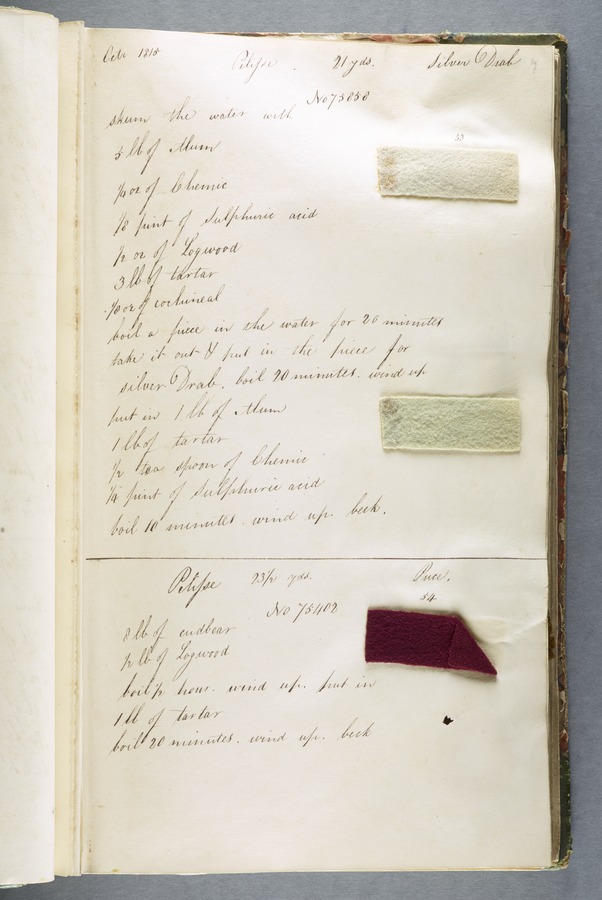 Octr 1815 Pelisse . 21 yds. Silver Drab
No 75858
skum the water with
53
5 lb of Alum
1/4 oz of Chemic
1/8 pint of Sulphuric acid
1/2 oz of Logwood
3 lb of tartar
oz of cochineal
boil a piece in the water for 20 minutes
take it out & put in the piece for
silver Drab. boil 20 minutes. wind up
put in 1 lb of Alum
1 lb of tartar
1/2 tea spoon of Chemic
1/4 pint of Sulphuric acid
boil 10 minutes. wind up. beck.
Pelisse 23 1/2 yds. Puce.
54
No 75402
8 lb of cudbear
1/2 lb of Logwood
boil 1/2 hour. wind up. put in
1 lb of tartar
boil 20 minutes. wind up. beck